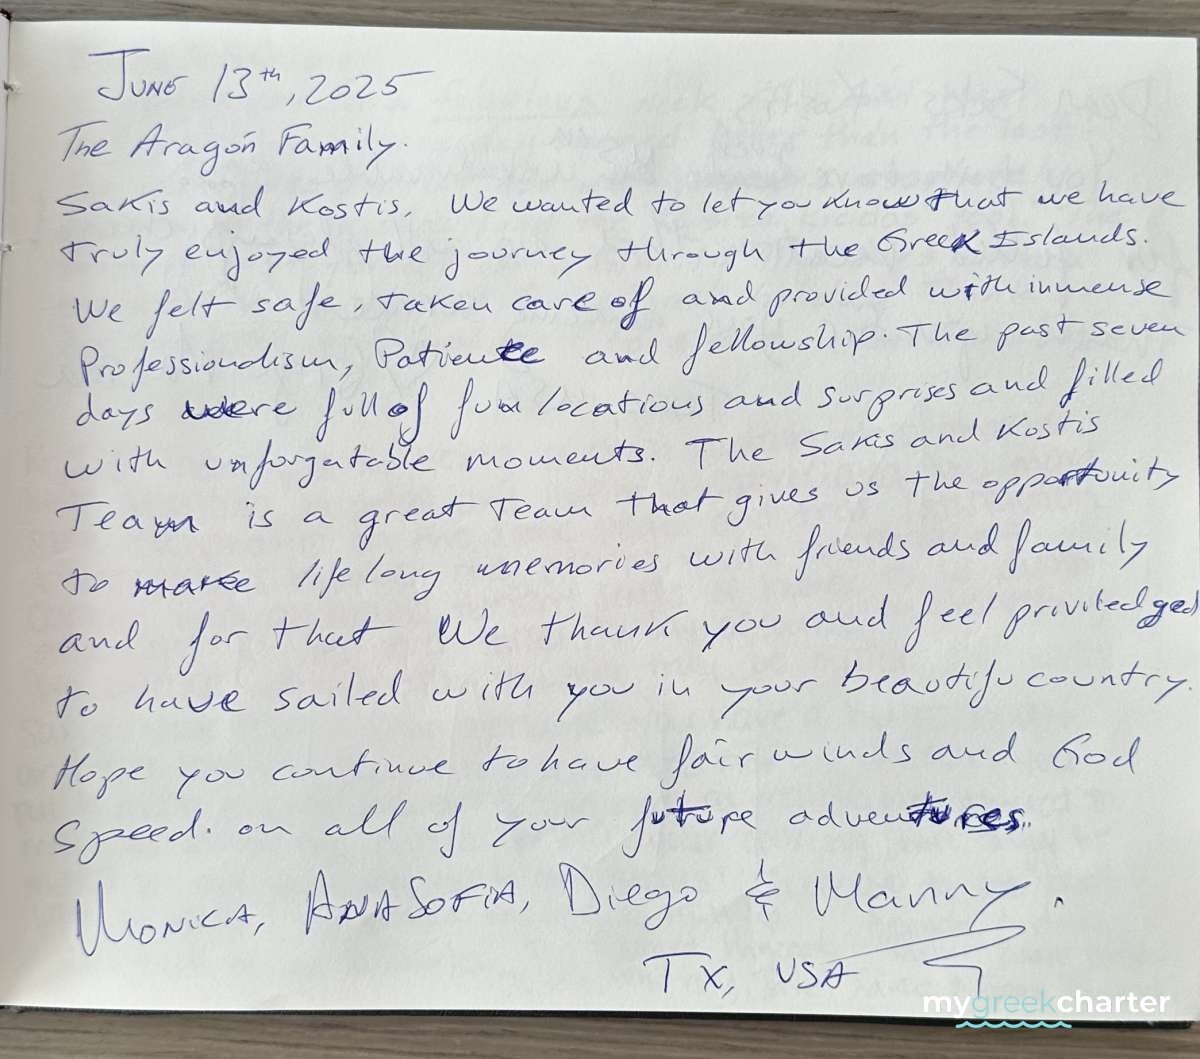 June 13th, 2025
The Aragón Family.
Sakis and Kostis, We wanted to let you know that we have
truly enjoyed the journey through the Greek Islands.
We felt safe, taken care of and provided with inmense
Professionalism, Patience and fellowship. The past seven
days were full of fun locations and surprises and filled
with unforgatable moments. The Sakis and Kostis
Team is a great Team that gives us the opportunity
to make lifelong memories with friends and family
and for that We thank you and feel priviledged
to have sailed with you in your beautifu country.
Hope you continue to have fair winds and God
Speed. on all of your future adventures.
Monica, AnaSofia, Diego & Manny.
TX, USA
mygreekcharter